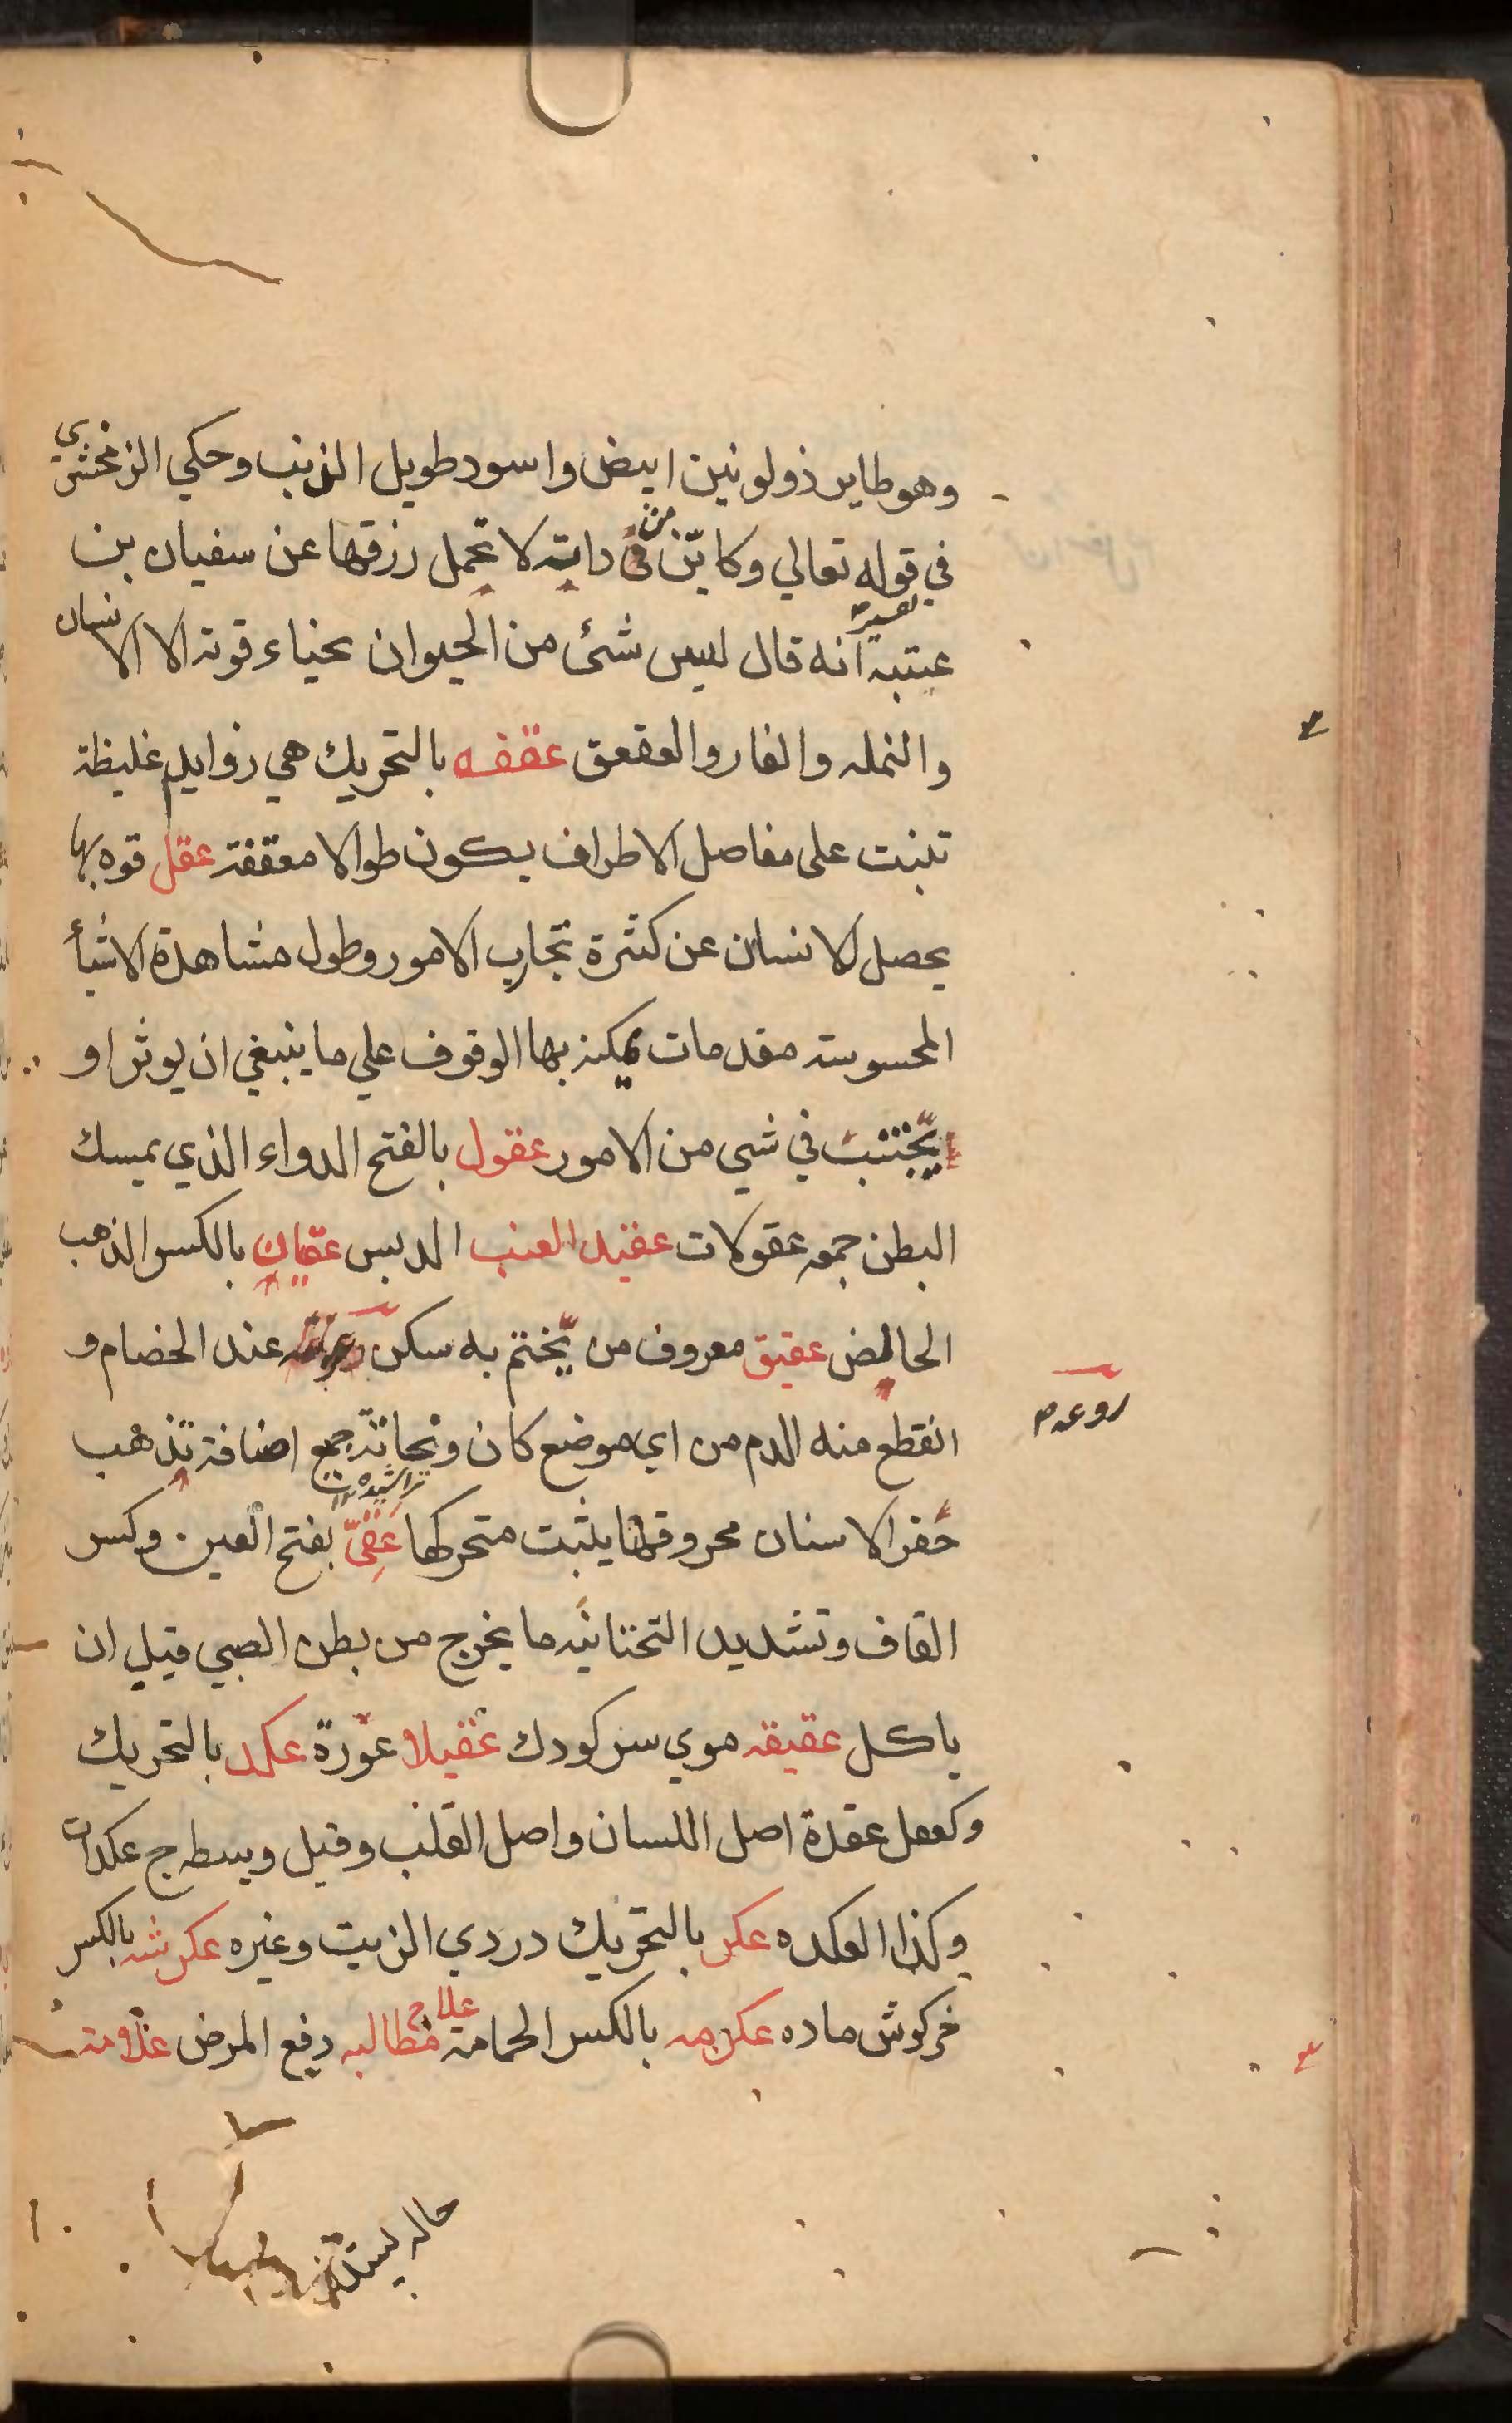 وهو طاير ذولونين ابيض واسود طويل الذنب وحكي الزمخشري
في قوله تعالي وكايّن من دابته لا تحمل رزقها عن سفيان بن
عتبة انه قال ليس شئ من الحيوان يخباء قوته الا الانسان
والنمله والفار والعقعق عقفه بالتحريك هي زوايد غليظة
تنبت على مفاصل الاطراف يكون طوالا معقفة عقل قوه بها
يحصل لانسان عن كثرة تجارب الامور وطول مشاهدة الاشيأ
المحسوسة مقدمات يمكنه بها الوقوف علي ما ينبغي ان يوثر او
يجتنب في شي من الامور عقول بالفتح الدواء الذي يمسك
البطن جمعه عقولات عقيد العنب الدبس عقيان بالكسر الذهب
الخالص عقيق معروف من يختم به سكن عند الخصام و
روعه م
انقطع منه الدم من اي موضع كان ونحاتة جمع اضافة تذهب
تراشيده
حفر الاسنان محروقها يثبت متحركها عَقِيّ بفتح العين وكسر
القاف وتشديد التحتانيه ما يخرج من بطن الصبي قبل ان
ياكل عقيقه موي سر كودك عقيلا عورة عكد بالتحريك
وكعمل عقدة اصل اللسان واصل القلب وقيل وسطه ج عكدات
وكذا العكده عكر بالتحريك دردي الزيت وغيره عكرشه بالكسر
خركوش ماده عكرمه بالكسر الحمامة علاج مطالبه دفع المرض علامة